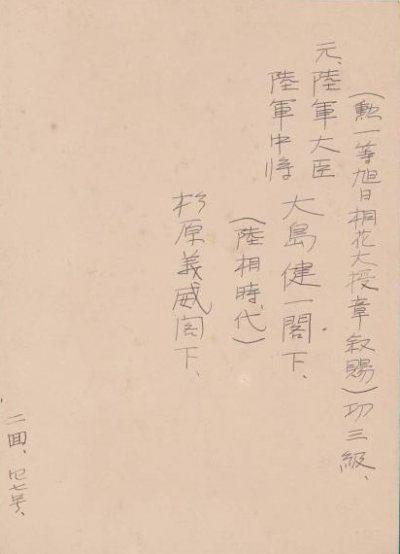 (勲一等旭日桐花大授章叙賜)功三級、
元、陸軍大臣
陸軍中将 大島健一閣下、
(陸相時、代)
杉原義威閣下、
二回、四七号、